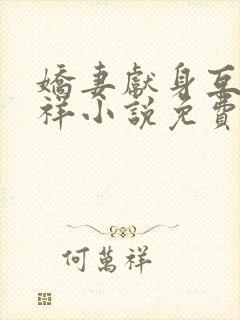 嬌妻獻身互
祥小說免費
何萬祥